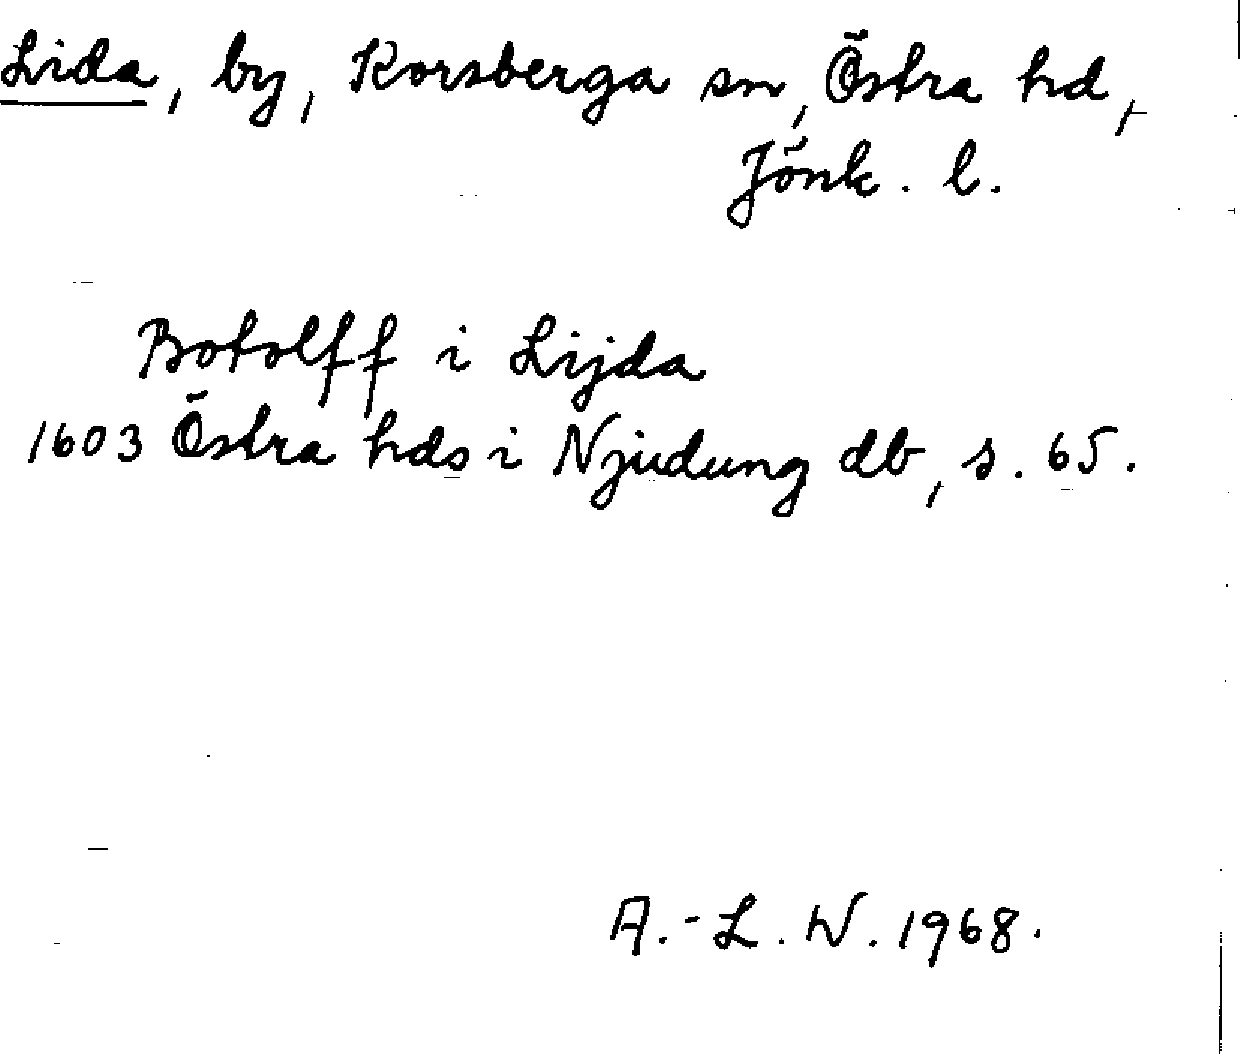 Lida, by, Korsberga sn, Östra hd,
Jönk. l.
Botolff i Lijda
1603 Östra hds i Njudung db, s. 65.
A.-L. W. 1968.